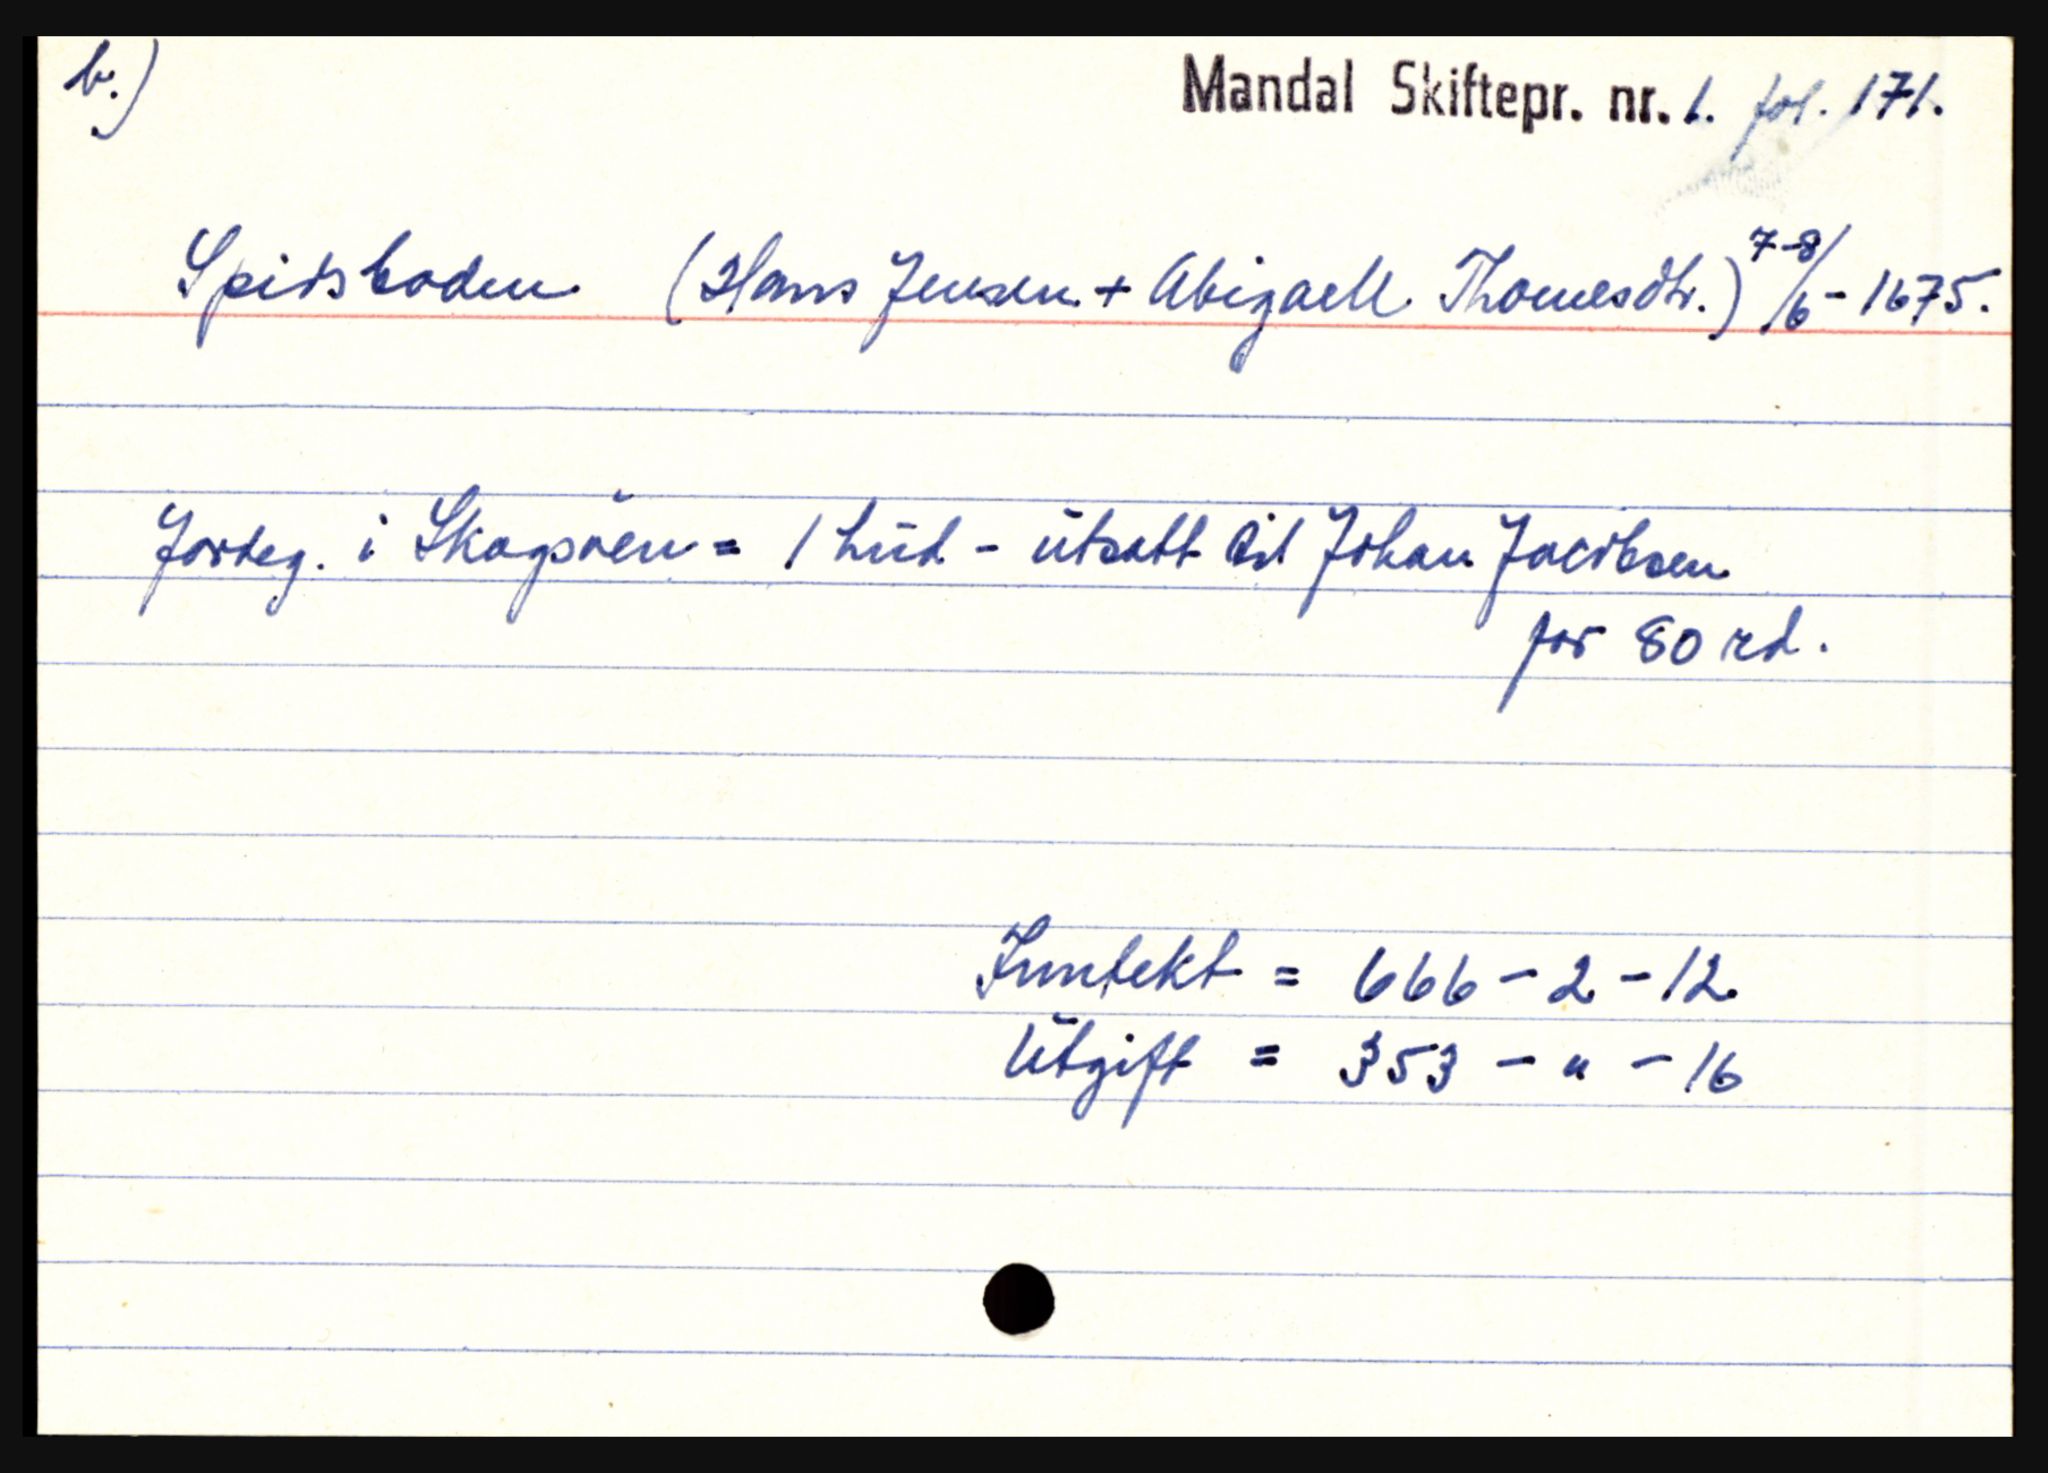 b.)
Mandal Skiftepr. nr. 1. fol. 171.
Spidsboden (Hans Jensen + Abigaell Thomesdtr.) 7-8/6 - 1675.
Jordeg. i Skagsöen = 1 hud - utsatt til Johan Jacobsen
for 80 rd.
Inntekt = 666 - 2 - 12.
Utgift = 353 - " - 16